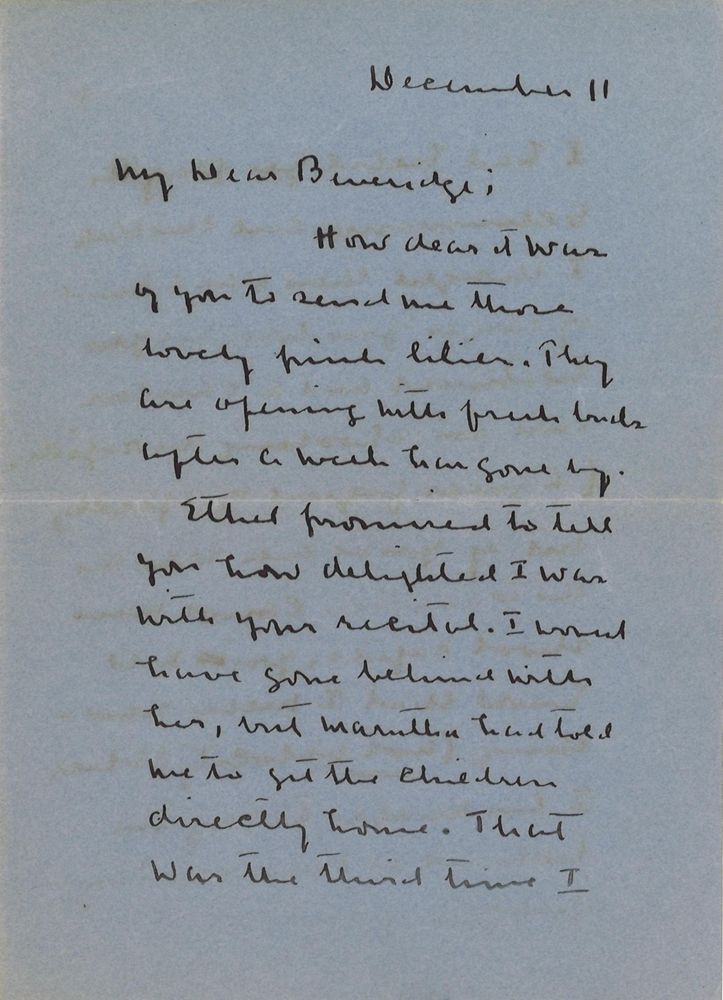 December 11
My Dear Beveridge;
How dear it was
of you to send me those
lovely pink lilies. They
are opening with fresh buds
after a week has gone by.
Ethel promised to tell
you how delighted I was
with your recital. I would
have gone behind with
her, but Martha had told
me to get the children
directly home. That
was the third time I